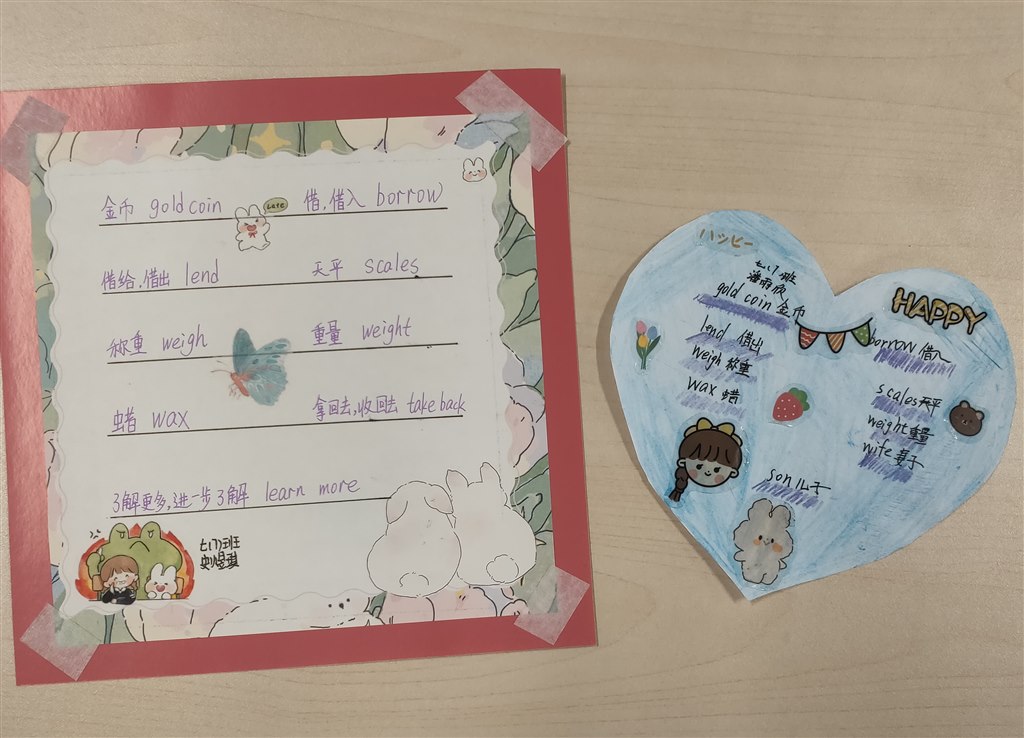 金币 gold coin 借,借入 borrow
LATE
借给,借出 lend 天平 scales
称重 weigh 重量 weight
蜡 wax 拿回去,收回去 take back
了解更多,进一步了解 learn more
七(7)班
史煜琪
ハッピー
七、八班
潘雨欣
gold coin 金币
lend 借出
weigh 称重
wax 蜡
HAPPY
borrow 借入
scales 天平
weight 重量
wife 妻子
son 儿子